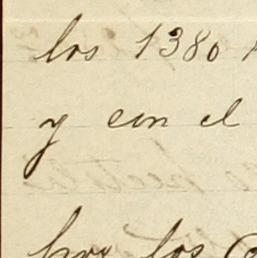 los 1380
y con el
hoy los